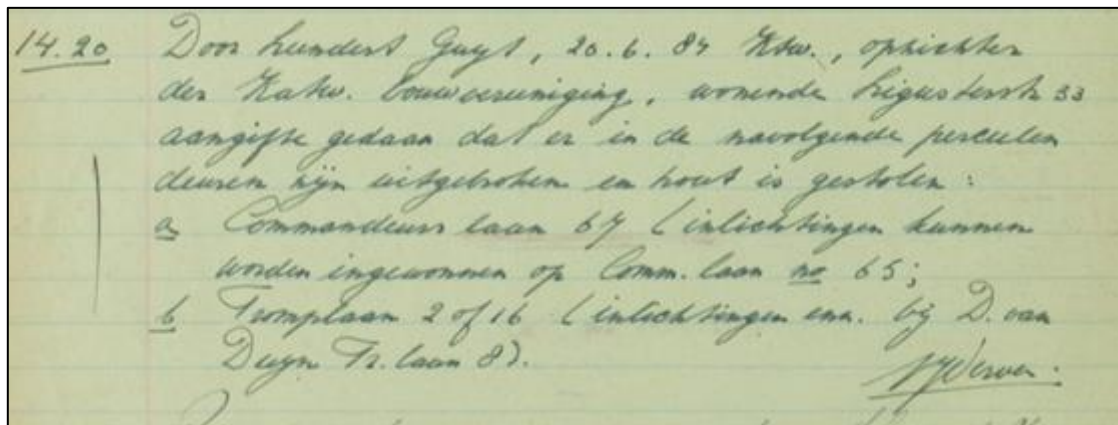 14.20 Door Leendert Guyt, 20.6.87 Ktw., opzichter
der Katw. bouwvereeniging, wonende Ligusterstr 33
aangifte gedaan dat er in de navolgende perceelen
deuren zijn uitgebroken en hout is gestolen:
a Commandeurs laan 67 (inlichtingen kunnen
worden ingewonnen op Comm. laan no 65;
b. Tromplaan 2 of 16 (inlichtingen enn. bij D. van
Duyn Tr. laan 8).